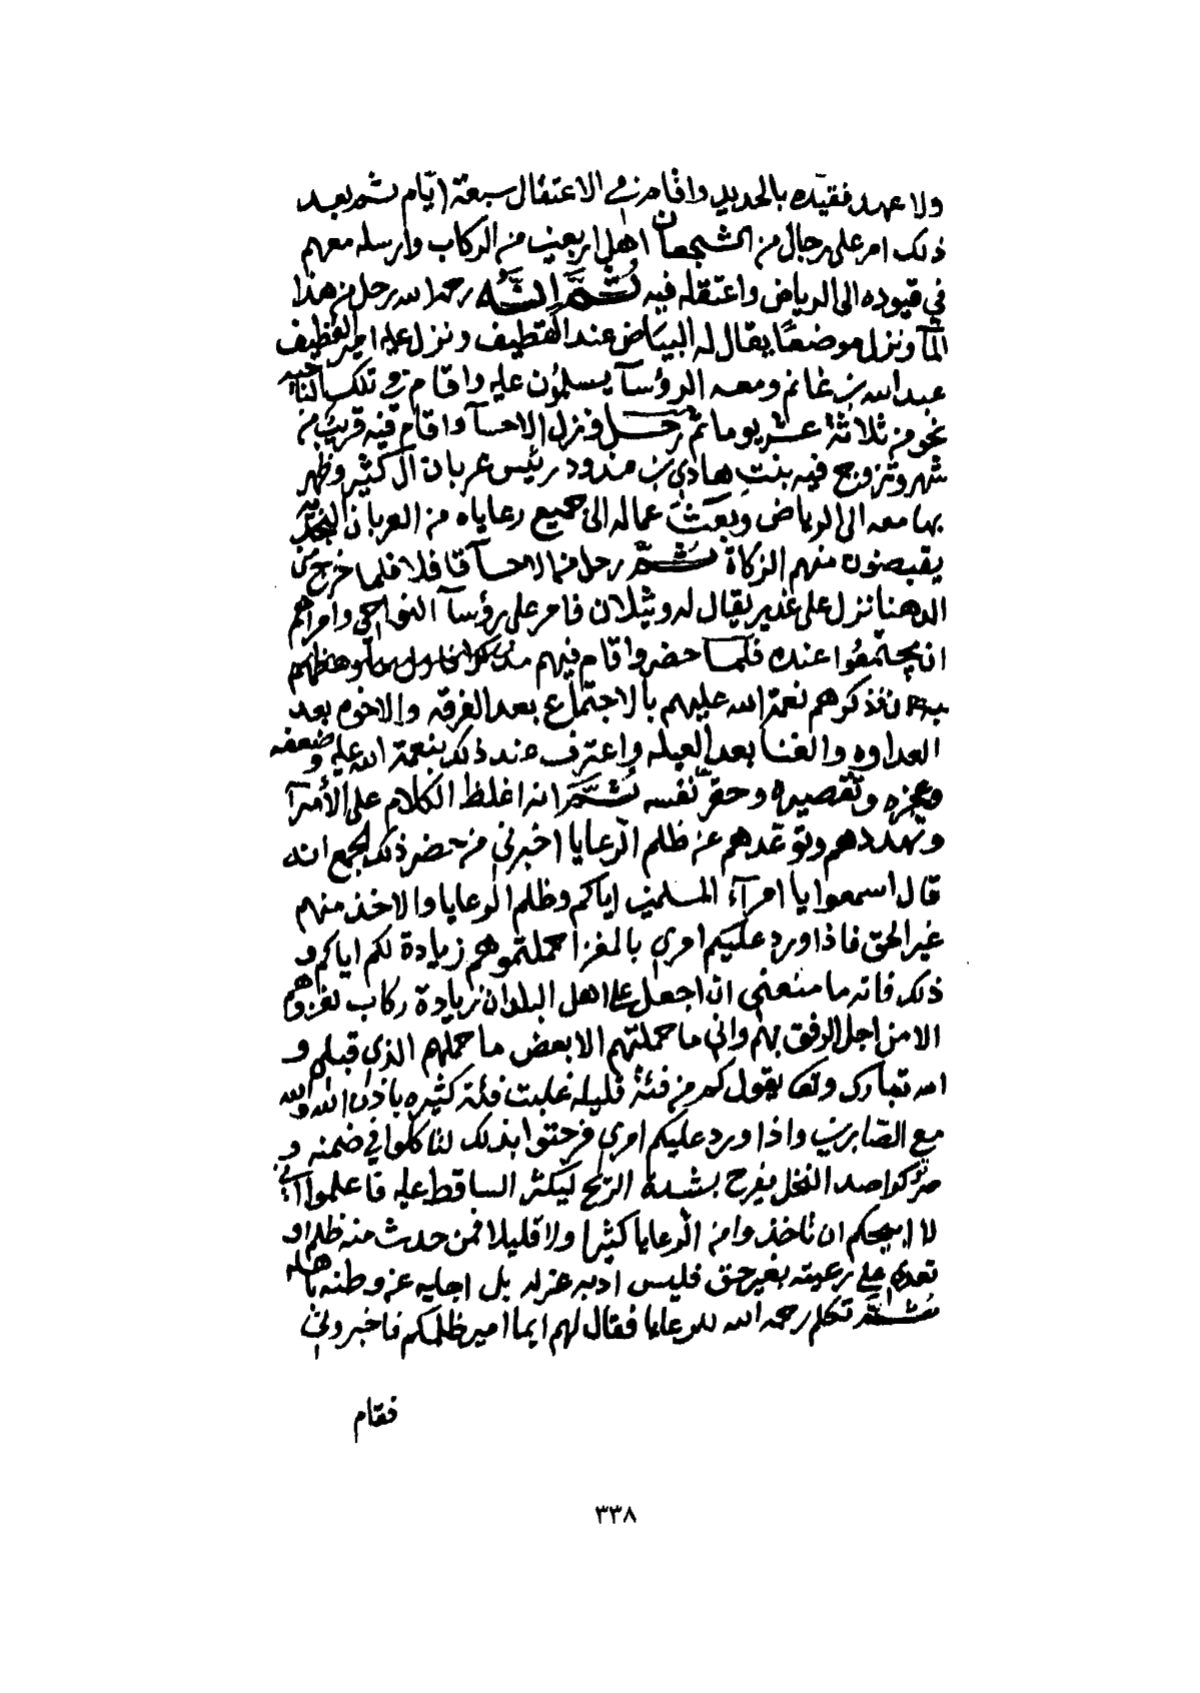 ولا عهد فقيده بالحديد واقام في الاعتقال سبعة ايّام ثم بعد
ذلك امر على رجال من الشجعان اهل اربعين من الركاب وارسله معهم
في قيوده الى الرياض واعتقله فيه ثُمَّ انَّه رحمه الله رحل من هذا
المآ ونزل موضعًا يقال له البيَاض عند القطيف ونزل عليه امير القطيف
عبد الله بن غانم ومعه الرؤسآ يسلمون عليه واقام في تلك الناحيه
نحو من ثلاثة عشر يوما ثم رحل ونزل الاحسآ واقام فيه قريب من
شهر وتزوج فيه بنت هادي بن مذود رئيس عربان ال كثير وظهر
بها معه الى الرياض وبعث عماله الى جميع رعاياه من العربان النجديه
يقبضون منهم الزكاة ثُمَّ رحل من الاحسآ قافلا فلما خرج من
الدهنا نزل على غدير يقال له وثيلان فامر على رؤسآ النواحي وامرآهم
ان يجتمعُوا عنده فلما حضروا قام فيهم
فذكرهم نعمة الله عليهم بالاجتماع بعد الفرقه والاخوه بعد
العداوه والغنا بعد العيله واعترف عند ذلك بنعمة الله عليه وضعفه
وعجزه وتقصيره وحقّر نفسه ثُمَّ انه اغلظ الكلام على الأمرآ
وتهددهم وتوعّدهم عن ظلم الرعايا اخبرني من حضر ذلك الجمع انه
قال اسمعوا يا امرآء المسلمين اياكم وظلم الرعايا والاخذ منهم
غير الحق فاذا ورد عليكم امري بالمغزا حملتموهم زيادة لكم اياكم و
ذلك فانه ما منعني ان اجعل على اهل البلدان زيادة ركاب لغزوهم
الا من اجل الرفق بهم واني ما حملتهم الا بعض ما حملهم الذي قبلي و
الله تبارك وتعا يقول كم من فئة قليله غلبت فئة كثيره باذن الله والله
مع الصّابرين واذا ورد عليكم امري فرحتوا بذلك لتاكلوا في ضمنه و
صرتوا كواصد النخل يفرح بشدة الرّيح ليكثر الساقط عليه فاعلموا اني
لا ابيحكم ان تاخذوا من الرعايا كثيرا ولا قليلا فمن حدث منه ظلم او
تعدي على رعيته بغير حق فليس ادبه عزله بل اجليه عن وطنه باهله
ثُمَّ تكلم رحمه الله للرعايا فقال لهم ايما امير ظلمكم فاخبروني
فقام
٣٣٨